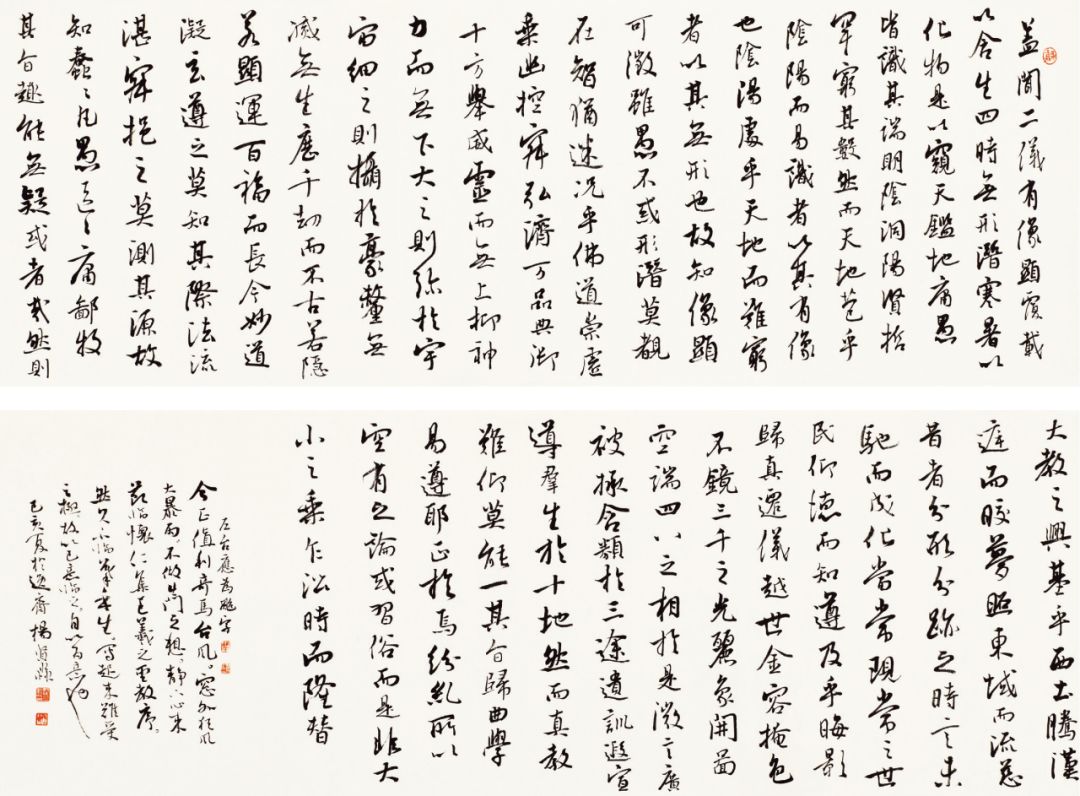 蓋聞二儀有像顯覆載
以含生四時無形潛寒暑以
化物是以窺天鑑地庸愚
皆識其端明陰洞陽賢哲
罕窮其數然而天地苞乎
陰陽而易識者以其有像
也陰陽處乎天地而難窮
者以其無形也故知像顯
可徵雖愚不惑形潛莫覩
在智猶迷況乎佛道崇虛
乘幽控寂弘濟万品典御
十方舉威靈而無上抑神
力而無下大之則彌於宇
宙細之則攝於豪釐無
滅無生歷千劫而不古若隱
若顯運百福而長今妙道
凝玄遵之莫知其際法流
湛寂挹之莫測其源故
知蠢々凡愚區々庸鄙投
其旨趣能無疑或者哉然則
大教之興基乎西土騰漢
庭而皎夢照東域而流慈
昔者分形分跡之時言未
馳而成化當常現常之世
民仰德而知遵及乎晦影
歸真遷儀越世金容掩色
不鏡三千之光麗象開圖
空端四八之相於是微言廣
被拯含類於三途遺訓遐宣
導群生於十地然而真教
難仰莫能一其旨歸曲學
易遵耶正於焉紛糺所以
空有之論或習俗而是非大
小之乘乍沿時而隆替
左台應為颱字
今正值利奇馬台風。窓外狂風
大暴雨不做出門之想。靜下心來
節臨懷仁集王羲之聖教序。
然久不臨筆生。寫起來難受
之極故以己意臨之自以為
己亥夏於逸齋楊